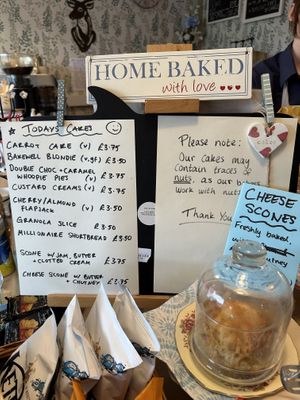 HOME BAKED
with love
TODAYS CAKES
CARROT CAKE (v) £3.75
BAKEWELL BLONDIE (v.gf) £3.50
DOUBLE CHOC + CARAMEL
WHOOPIE PIES (v) £3.75
CUSTARD CREAMS (v) £3.75
CHERRY/ALMOND (v) £3.50
FLAPJACK
GRANOLA SLICE £3.50
MILLIONAIRE SHORTBREAD £3.50
SCONE W/ JAM, BUTTER
+ CLOTTED CREAM £3.75
CHEESE SCONE W/ BUTTER
+ CHUTNEY £3.75
Please note:
Our cakes may
contain traces of
nuts, as our
work with nuts
Thank You
cakes
CHEESE
SCONES
Freshly baked,